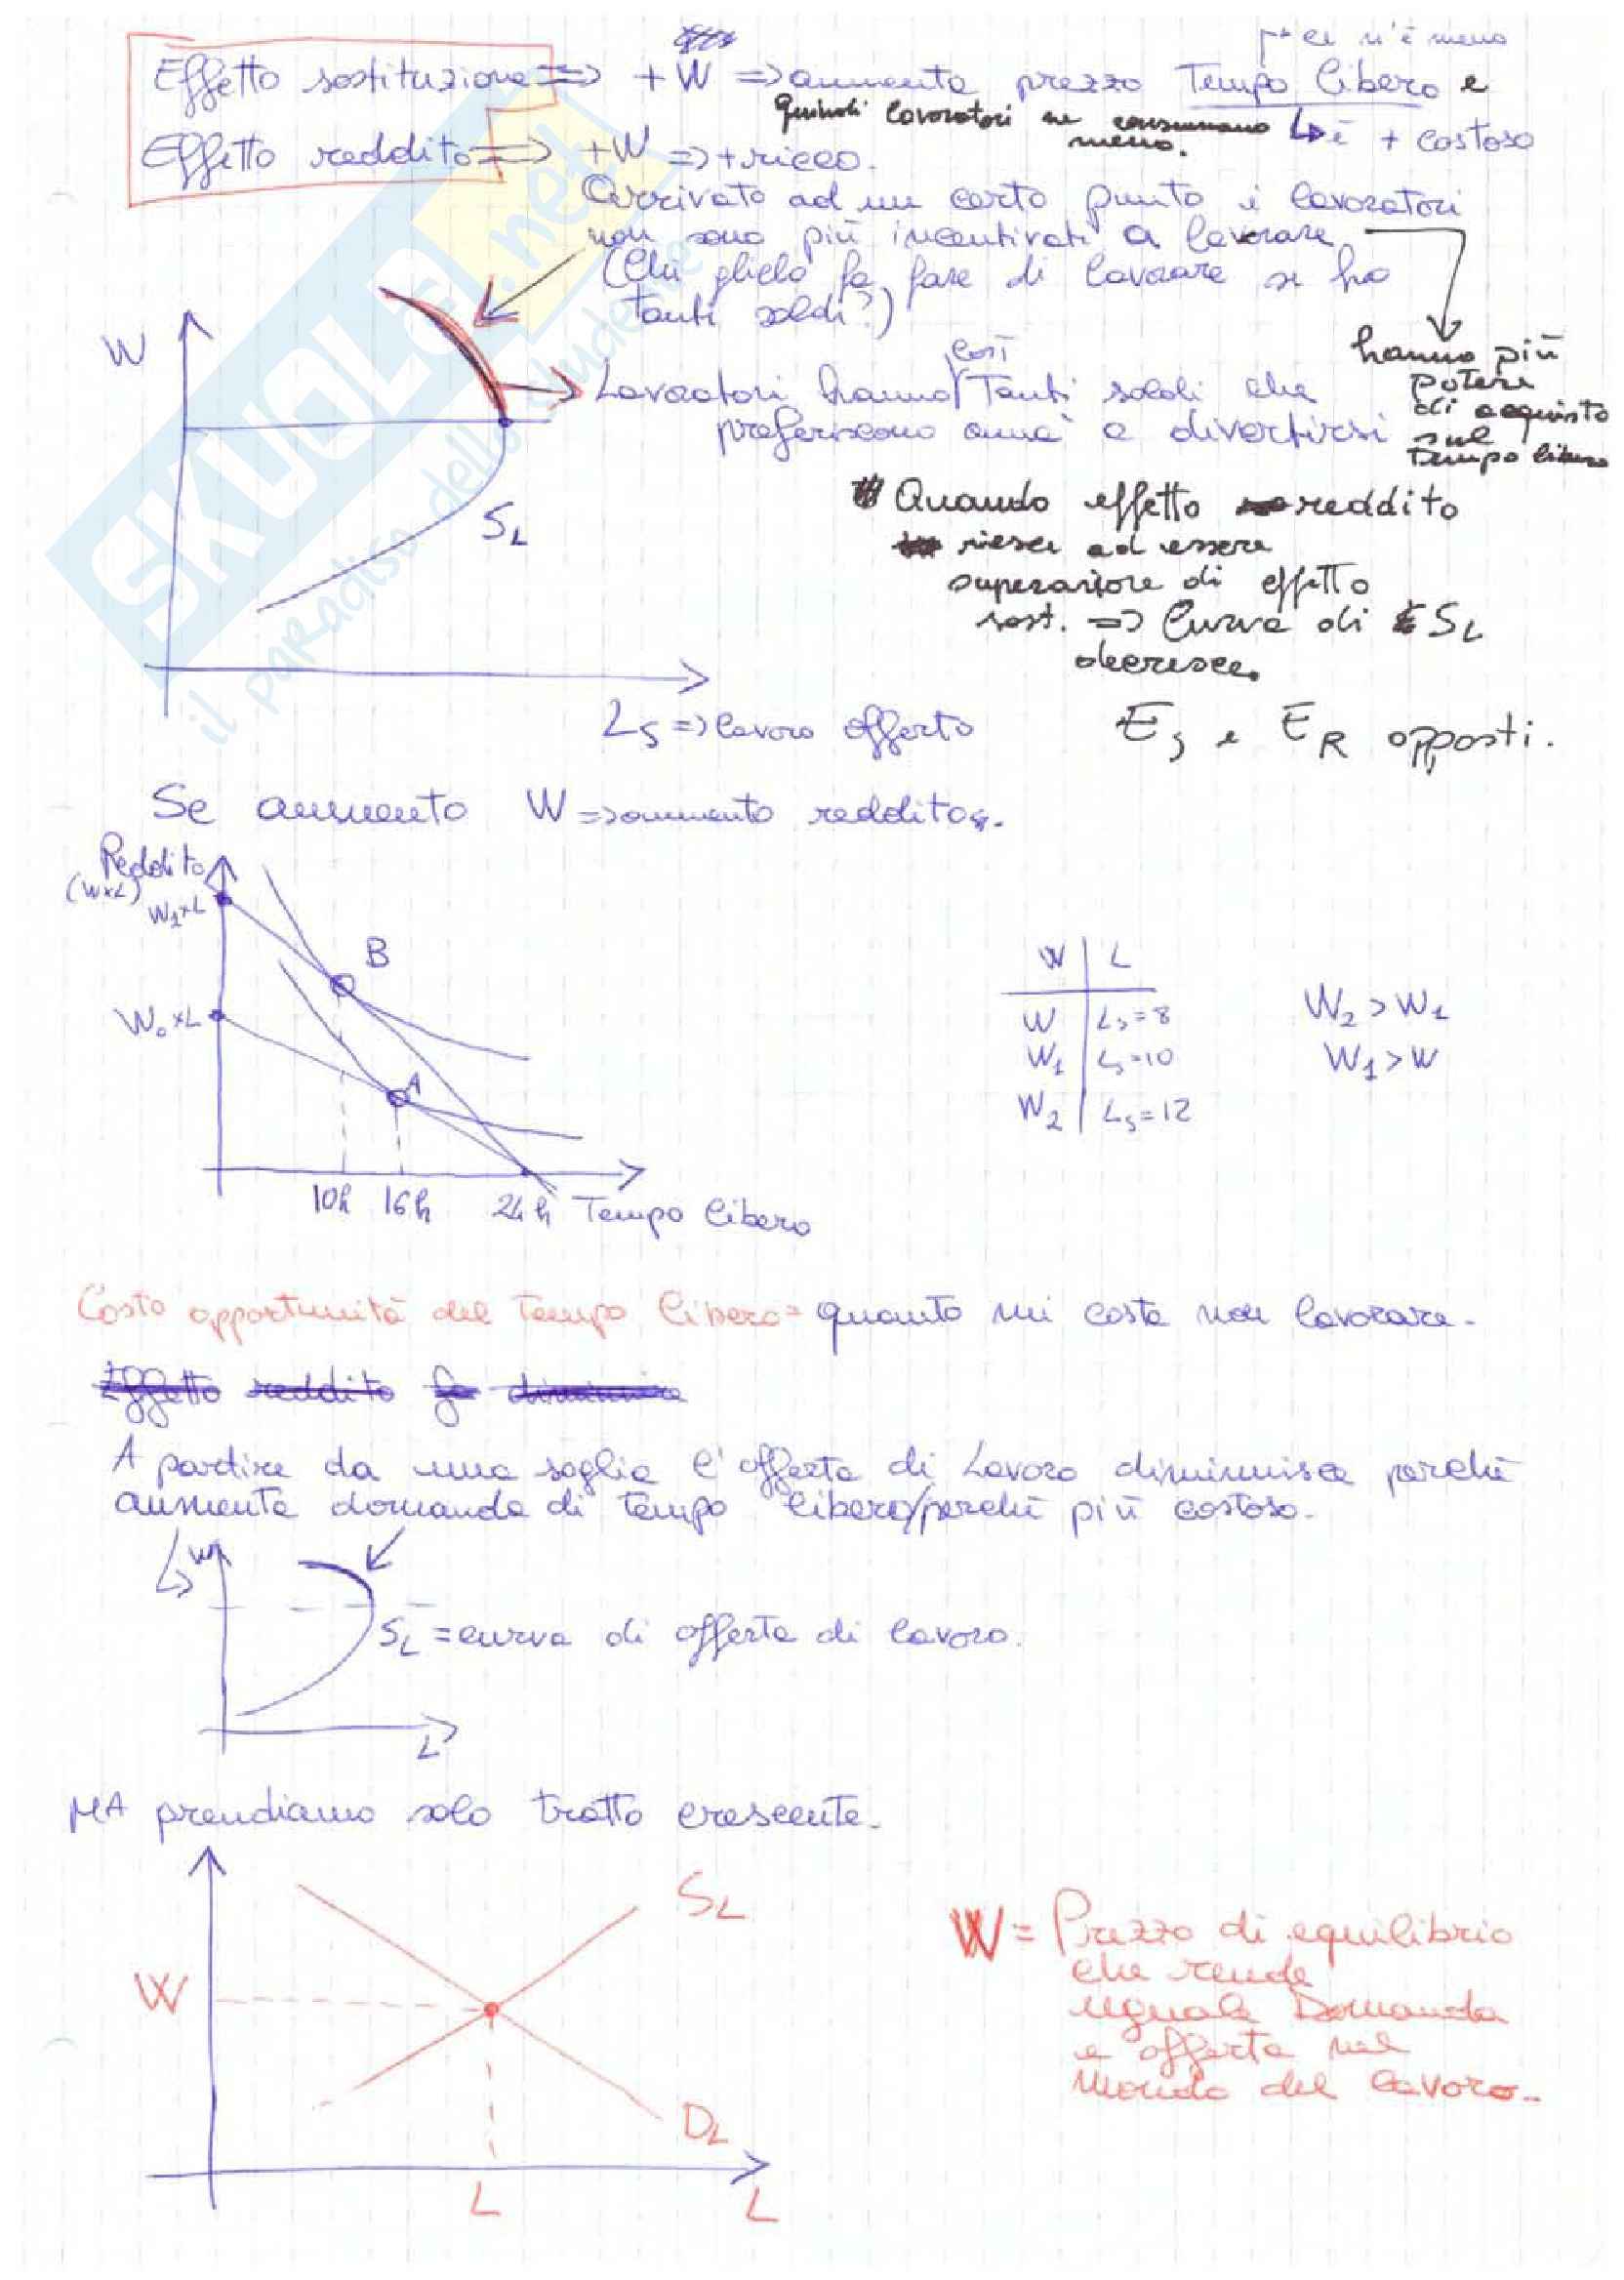 Effetto sostituzione => +W => aumenta prezzo Tempo libero e
ce n'è meno
quindi lavoratori ne consumano
meno.
è + costoso
Effetto reddito => +W => +ricco.
Arrivato ad un certo punto i lavoratori
non sono più incentivati a lavorare
(Chi glielo fa fare di lavorare se ha
tanti soldi?)
hanno più
potere
di acquisto
sul
Tempo libero
W
Lavoratori hanno così Tanti soldi che
preferiscono a divertirsi
SL
Quando effetto reddito
riesce ad essere
superiore di effetto
sost. => Curva di SL
decresce.
LS => lavoro offerto
ES e ER opposti.
Se aumento W => aumento reddito.
Reddito
(W×L)
W1×L
B
W0×L
A
10h 16h 24h Tempo libero
W L
W LS=8
W1 LS=10
W2 LS=12
W2 > W1
W1 > W
Costo opportunità del Tempo libero = quanto mi costa non lavorare.
Effetto reddito fa diminuire
A partire da una soglia l'offerta di Lavoro diminuisce perchè
aumenta domanda di tempo libero/perchè più costoso.
W
SL = curva di offerta di lavoro.
L
MA prendiamo solo tratto crescente.
SL
W
DL
L
L
W = Prezzo di equilibrio
che rende
uguale Domanda
e offerta nel
mondo del lavoro.
SKUOLA.net
il paradiso dello studente